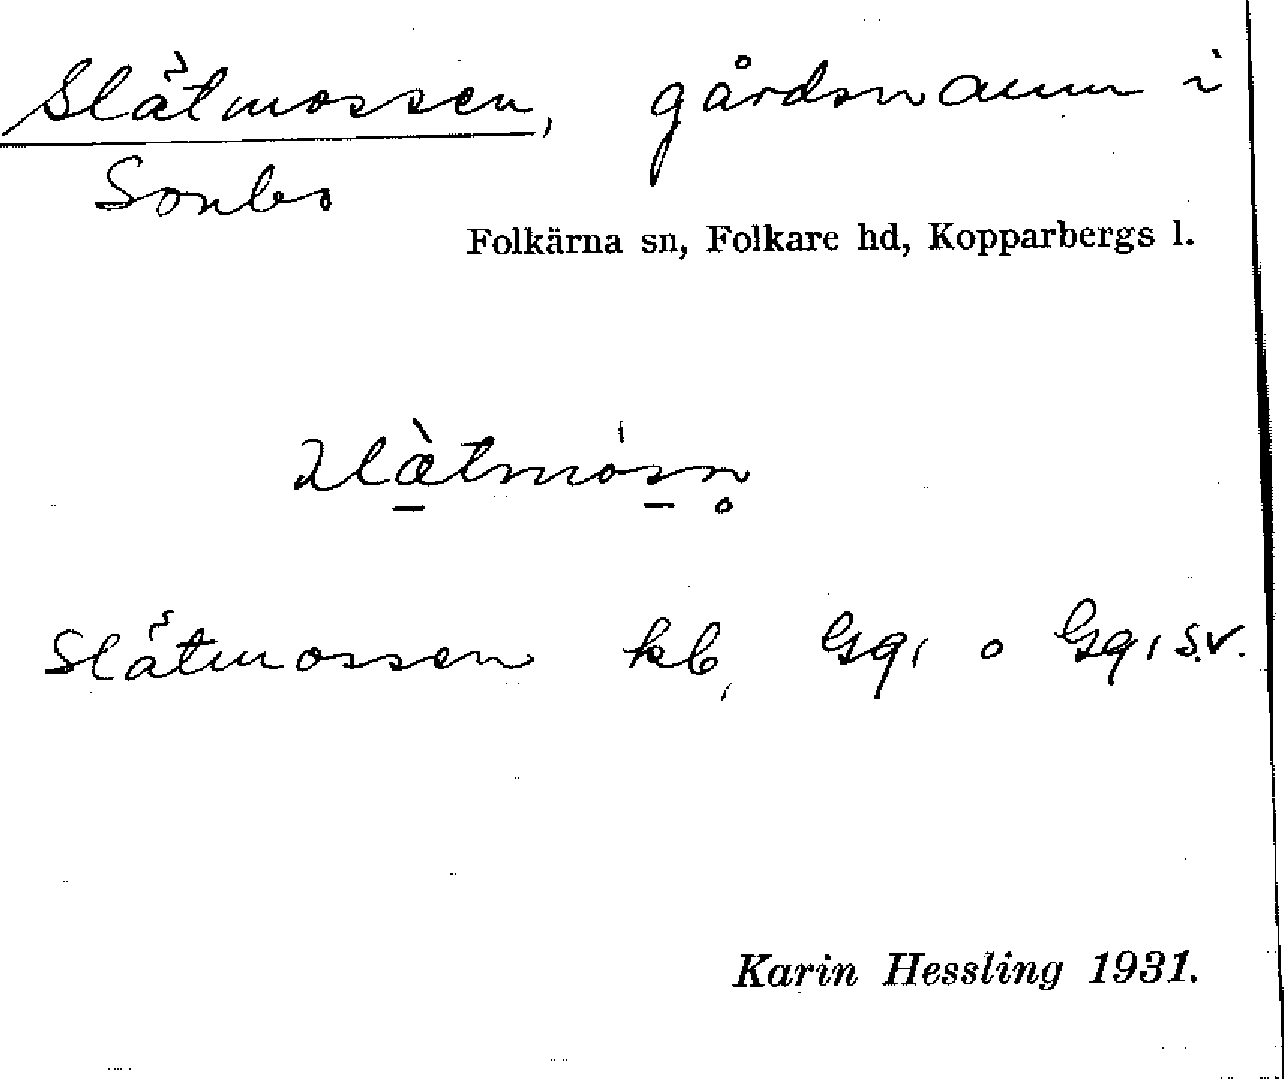 Slätmossen, gårdsnamn i
Sonbo
Folkärna sn, Folkare hd, Kopparbergs l.
Slätmossen kb,
Karin Hessling 1931.